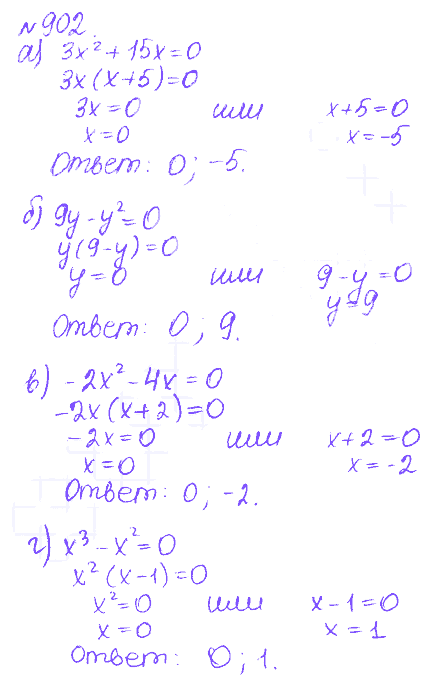 №902.
а) 3x² + 15x = 0
3x(x+5)=0
3x=0 или x+5=0
x=0 x=-5
Ответ: 0; -5.
б) 9y - y² = 0
y(9-y)=0
y=0 или 9-y=0
y=9
Ответ: 0; 9.
в) -2x² - 4x = 0
-2x(x+2)=0
-2x=0 или x+2=0
x=0 x=-2
Ответ: 0; -2.
г) x³ - x² = 0
x²(x-1)=0
x²=0 или x-1=0
x=0 x=1
Ответ: 0; 1.